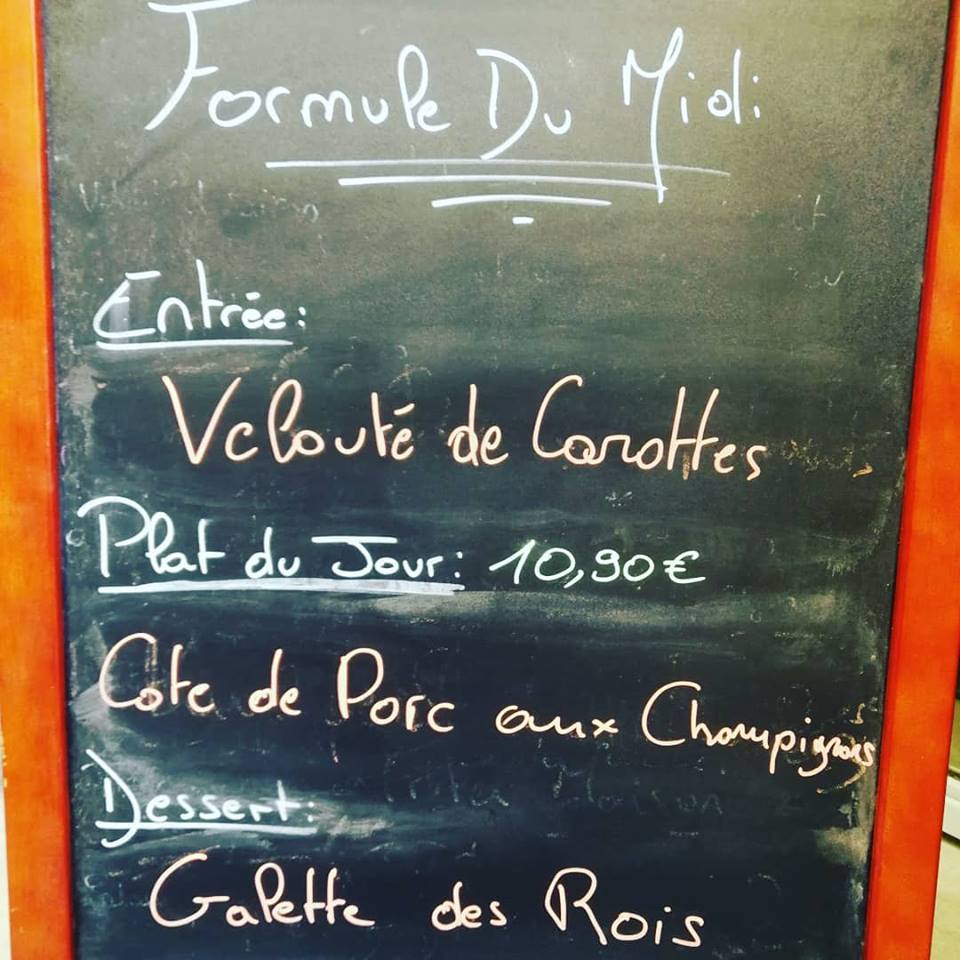 Formule Du Midi
Entrée:
Velouté de Carottes
Plat du Jour: 10,90€
Cote de Porc aux Champignons
Dessert:
Galette des Rois